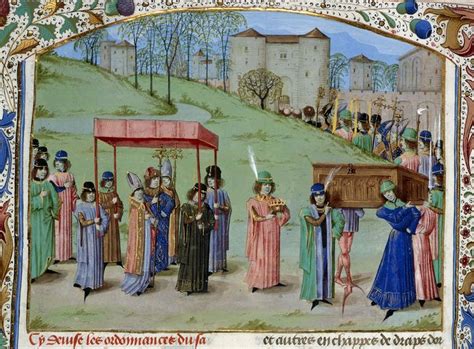 Cy deuise les ordonnances du sa
et autres en chappes de draps dor